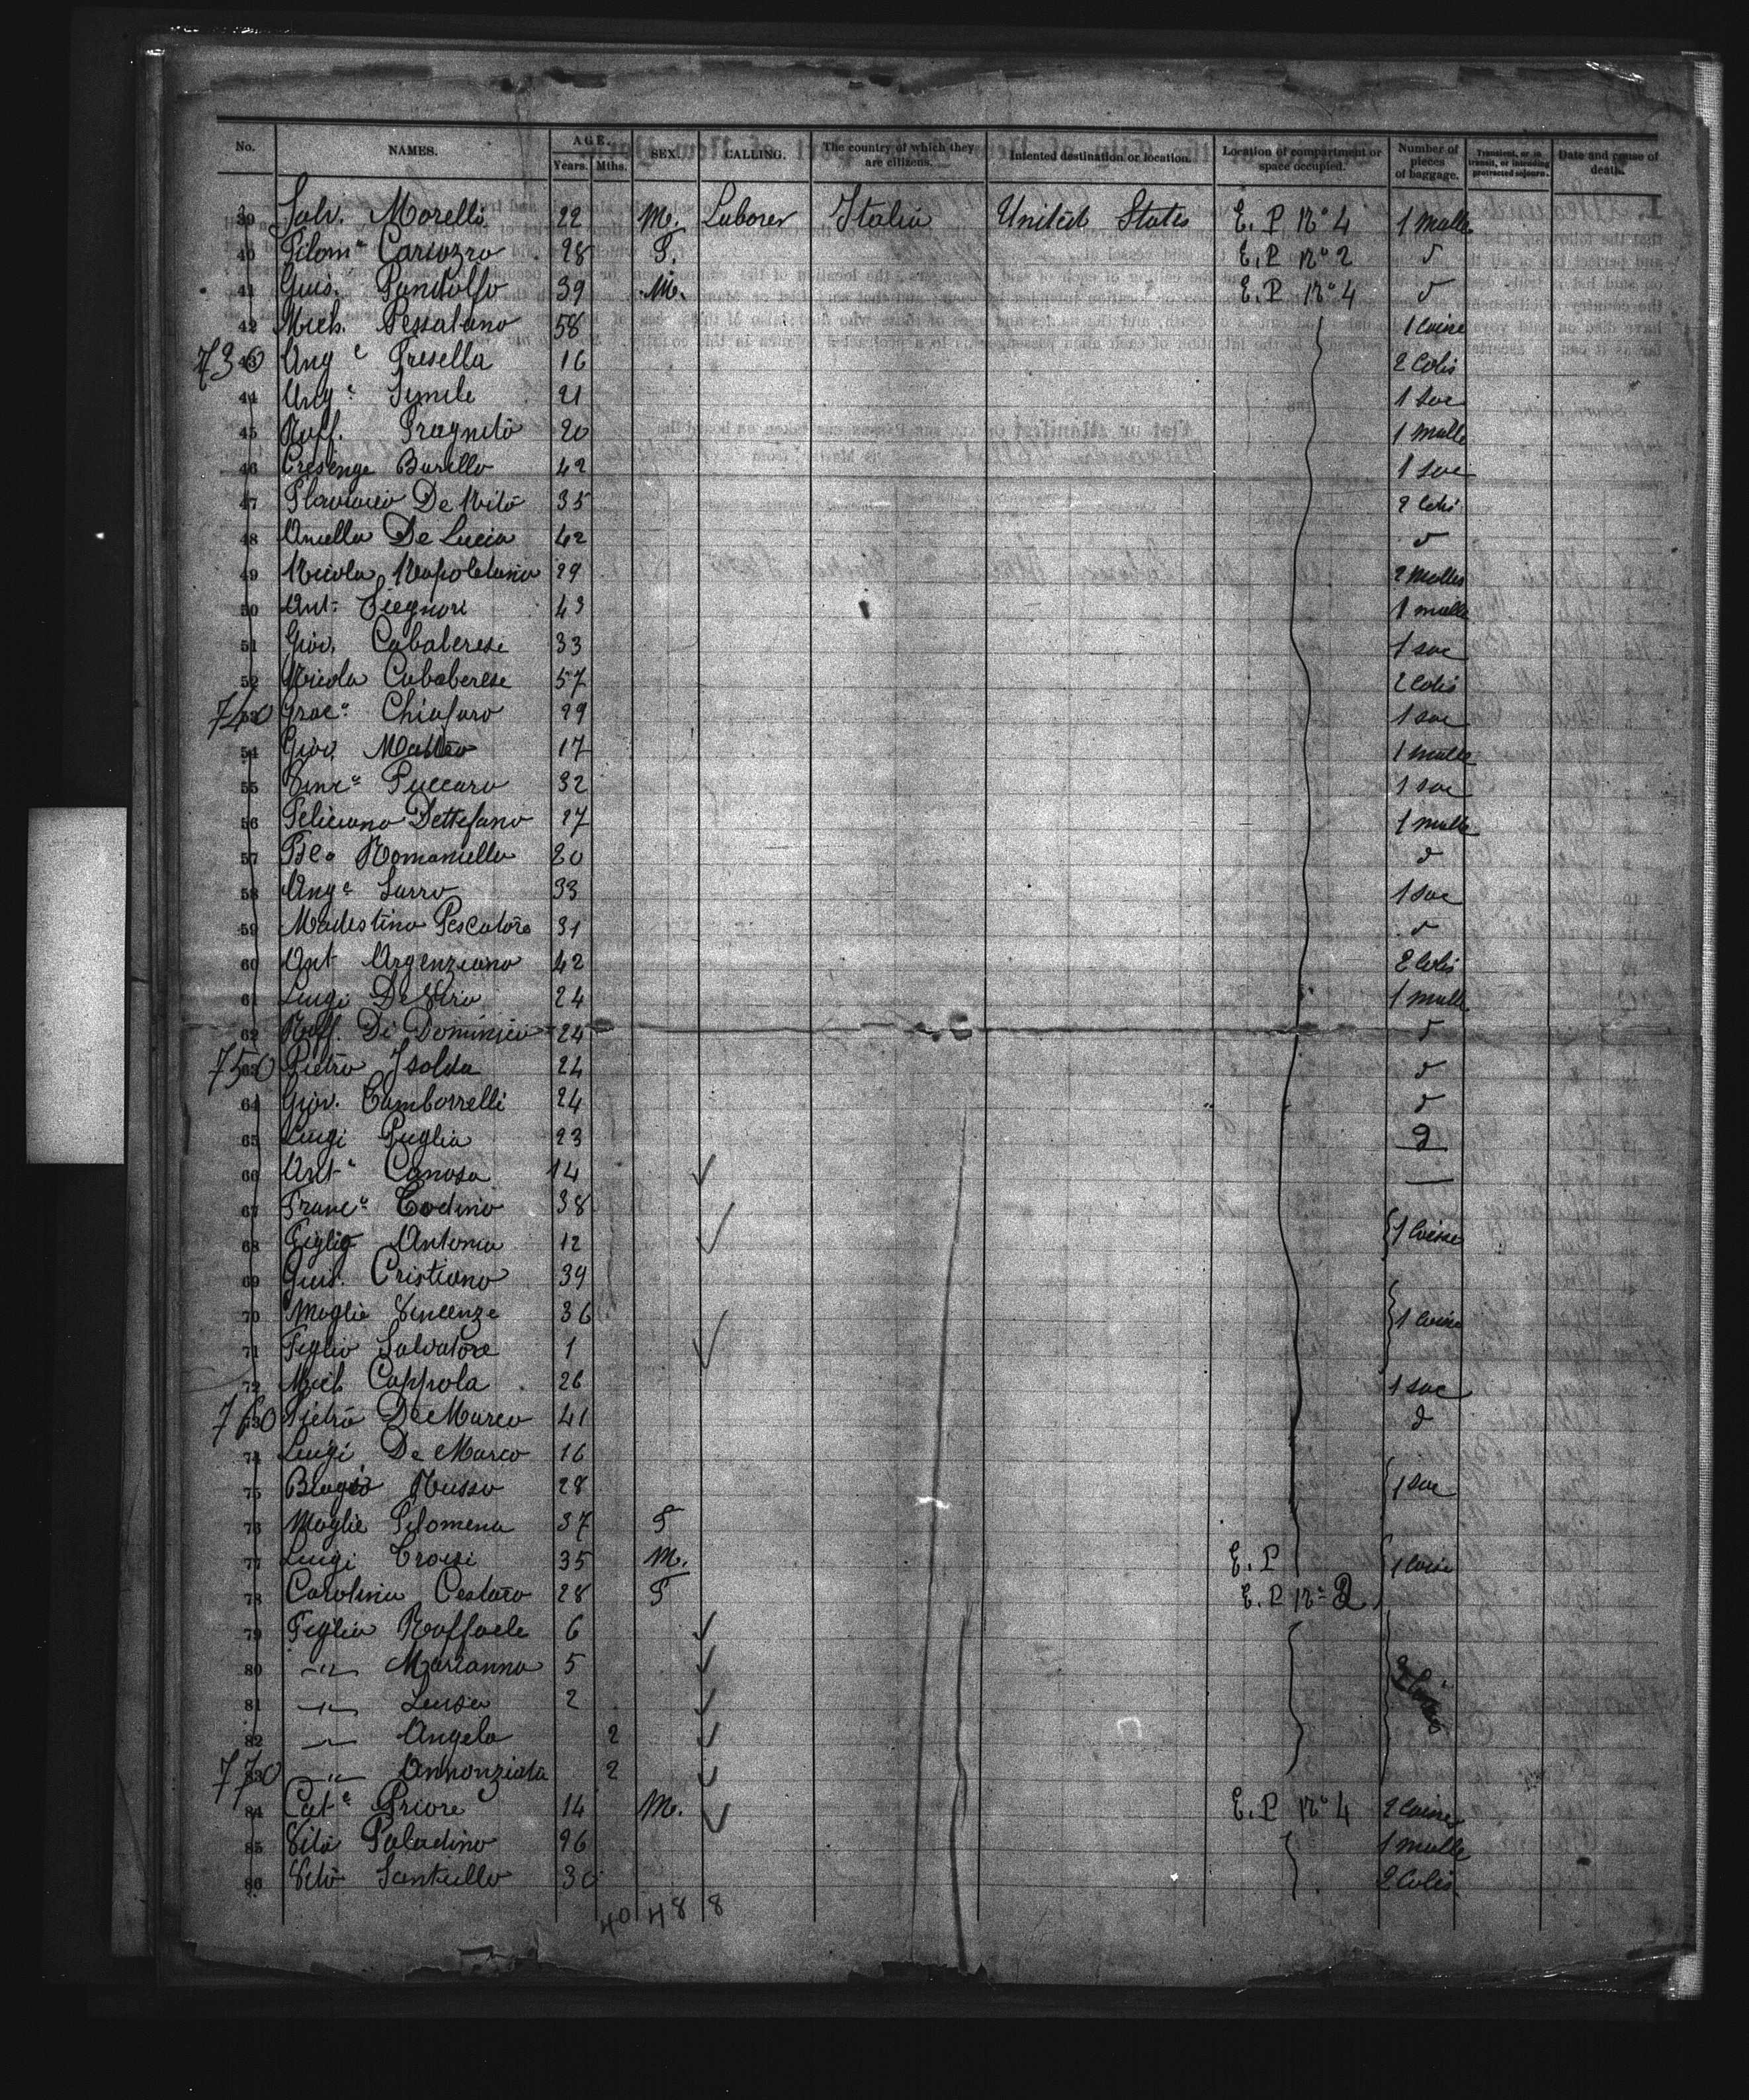 No. NAMES. AGE. Years. Mths. SEX. CALLING. The country of which they are citizens. Intented destination or location. Location of compartment or space occupied. Number of pieces of baggage. Transient, or in transit, or intending protracted sojourn. Date and cause of death.
39 Salv. Morello 22 M. Laborer Italia United States E. P Nº 4 1 Malle
40 Filomª 28 F. E. P Nº 2 d
41 Gius. Pandolfo 39 M. E. P Nº 4 d
42 Mich. Pessalano 58 1 Caisse
730 43 Angº Presella 16 2 Colis
44 Angº Simile 21 1 Sac
45 Raff. Pragnito 20 1 Malle
46 Barillo 42 1 Sac
47 De Vito 35 2 Colis
48 Aniello De Lucia 42 d
49 Nicola Napoletano 29 2 Malles
50 Antº 43 1 malle
51 Giov. Cabaterese 33 1 sac
52 Nicola Cabaterese 57 2 Colis
740 53 Gracº Chiafaro 29 1 sac
54 Giov. Matteo 17 1 malle
55 Vincº Puccaro 32 1 sac
56 Feliciano Dettefano 27 1 malle
57 Romaniello 20 d
58 Angº Sarro 33 1 sac
59 Modestino Pescatore 31 d
60 Ant Argenziano 42 2 Colis
61 Luigi 24 1 malle
62 Raff. Di Dominico 24 d
750 63 Pietro Isolda 24 d
64 Giov. Tamborrelli 24 d
65 Luigi Puglia 23 d
66 Antº Canosa 14 —
67 Francº Codino 38
68 Figlio Antonio 12 1 Caisse
69 Gius. Cristiano 39
70 Moglie Vincenze 36 1 Caisse
71 Figlio Salvatore 1
72 Mich Coppola 26 1 sac
760 73 Pietro De Marco 41 d
74 Luigi De Marco 16
75 Biagio Russo 28 1 sac
76 Moglie Filomena 37 F
77 Luigi Troisi 35 M. E. P 1 Caisse
78 Carolina Cestaro 28 F E. P Nº 2
79 Figlio Raffaele 6
80 -"- Marianna 5
81 -"- Luisa 2
82 -"- Angela 2
770 83 -"- Annonziata 2
84 Catº Priore 14 M. E. P Nº 4 2 Caisses
85 Vito Paladino 26 1 malle
86 Vito Santullo 30 2 Colis
40 48 8